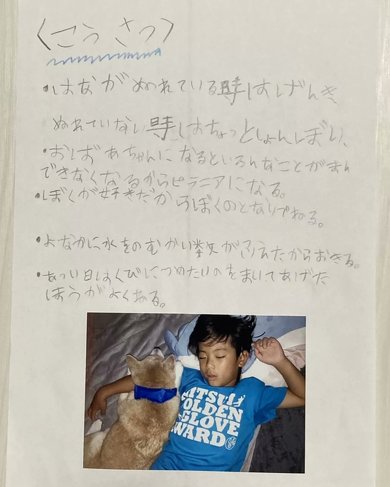 〈こうさつ〉
・はながぬれている時はげんき、
ぬれていない時はちょっとしょんぼり、
・おばあちゃんになるといろんなことががまん
できなくなるからピラニアになる。
・ぼくが好きだからぼくのとなりでねる。
・よなかに水をのむかい数がふえたからおきる。
・あつい日はくびにつめたいのをまいてあげた
ほうがよくねる。
GOLDEN
GLOVE
AWARD